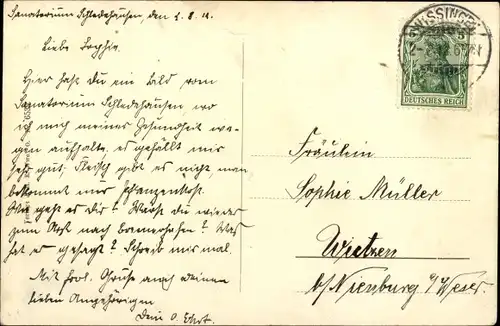 Sanatorium Schledehausen, den 2.8.12.
Liebe Sophie.
Hier hast du ein Bild vom
Sanatorium Schledehausen wo
ich mich meiner Gesundheit we-
gen aufhalte. es gefällt mir
sehr gut. Fleisch gibt es nicht man
bekommt nur Pflanzenkost.
Wie geht es dir? Warst du wieder
zum Arzt nach Bremerhafen? Was
hat er gesagt? Schreib mir mal.
Mit frdl. Gruße auch deinen
lieben Angehörigen
Dein O.
BISSINGEN
5
DEUTSCHES REICH
Fräulein
Sophie Müller
Wietzen
b/Nienburg a/Weser.